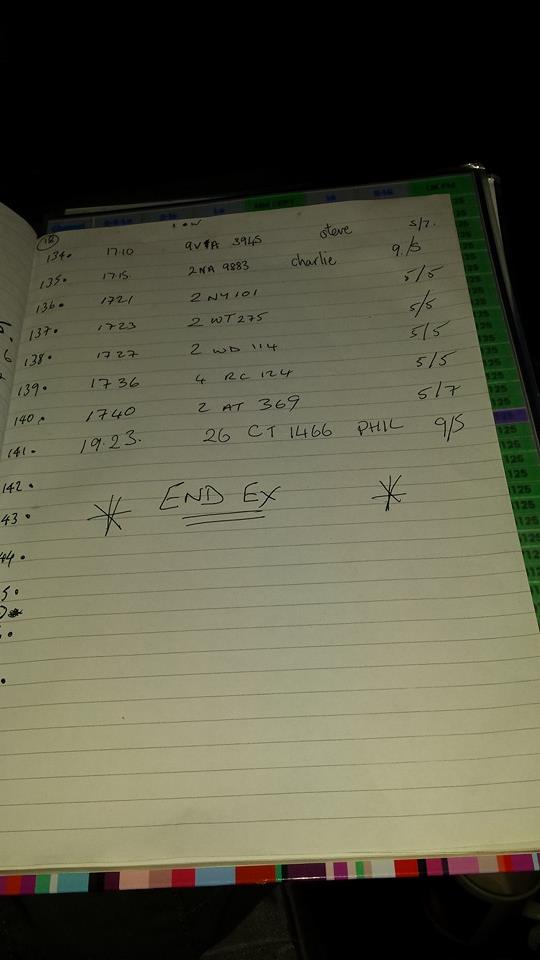 134. 1710 9V#A 3945 steve 5/7.
135. 1715 2NA 9883 charlie 9/5
136. 1721 2 NY 101 5/5
137. 1723 2 WT 275 5/5
138. 1727 2 WD 114 5/5
139. 1736 4 RC 124 5/5
140. 1740 2 AT 369 5/7
141. 19.23. 26 CT 1466 PHIL 9/5
142.
43.
* END EX *
44.
5.
125
125
125
125
125
125